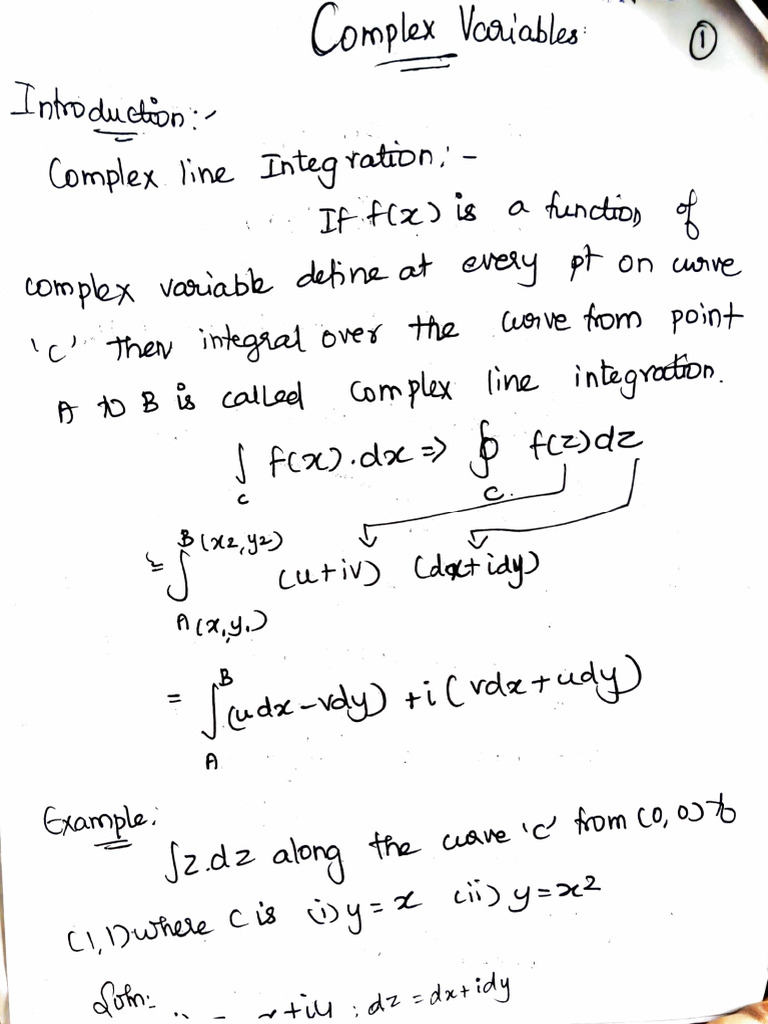 Complex Variables: ①
Introduction:-
Complex line Integration:-
If f(x) is a function of
complex variable define at every pt on curve
'c' then integral over the curve from point
A to B is called complex line integration.
∫c f(x).dx ⇒ ∮c. f(z)dz
= ∫A(x,y,)B(x2,y2) (u+iv) (dx+idy)
= ∫AB (udx-vdy) +i(vdx+udy)
Example:
∫z.dz along the curve 'c' from (0,0) to
(1,1) where C is (i) y=x (ii) y=x2
Soln:
x+iy ; dz = dx+idy